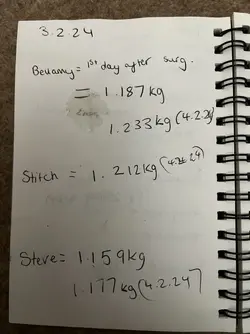 3.2.24
Bellamy = 1st day after surg.
= 1.187kg
1.233kg (4.2.24)
Stitch = 1.212kg (4.2.24)
Steve = 1.159kg
1.177kg (4.2.24)